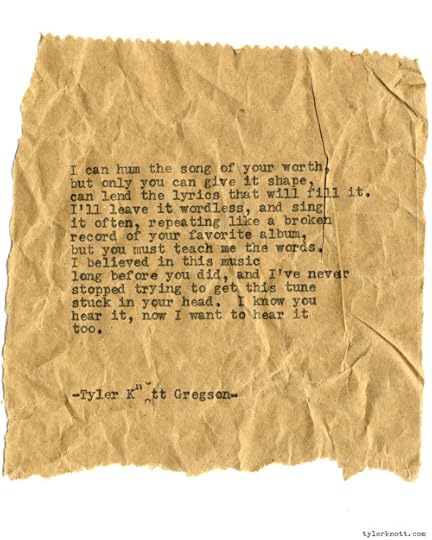 I can hum the song of your worth,
but only you can give it shape,
can lend the lyrics that will fill it.
I'll leave it wordless, and sing
it often, repeating like a broken
record of your favorite album,
but you must teach me the words.
I believed in this music
long before you did, and I've never
stopped trying to get this tune
stuck in your head.  I know you
hear it, now I want to hear it
too.
-Tyler Knott Gregson-
tylerknott.com